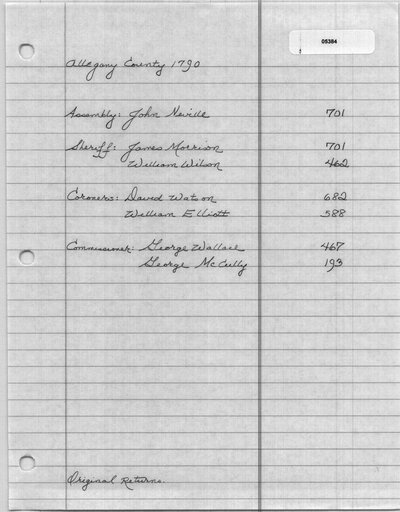 05384
Allegany County 1790
Assembly: John Neville 701
Sheriff: James Morrison 701
William Wilson 462
Coroners: David Watson 682
William Elliott 588
Commissioner: George Wallace 467
George McCully 193
Original Returns.